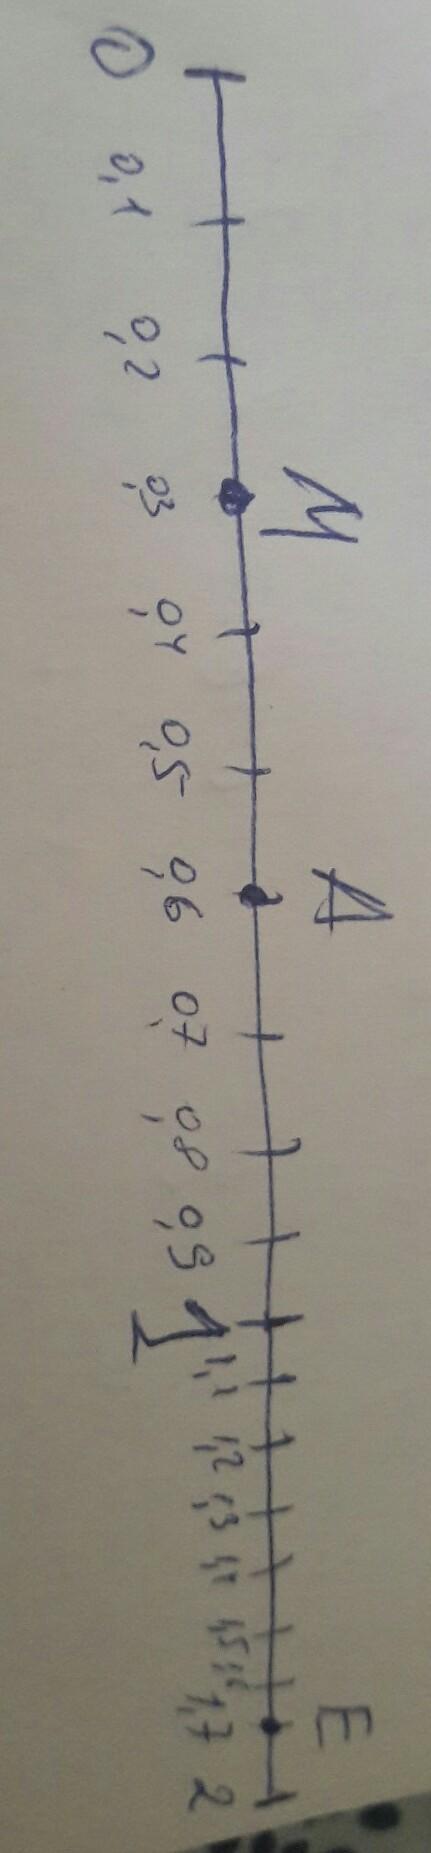 M A E
0 0,1 0,2 0,3 0,4 0,5 0,6 0,7 0,8 0,9 1 1,1 1,2 1,3 1,4 1,5 1,6 1,7 2